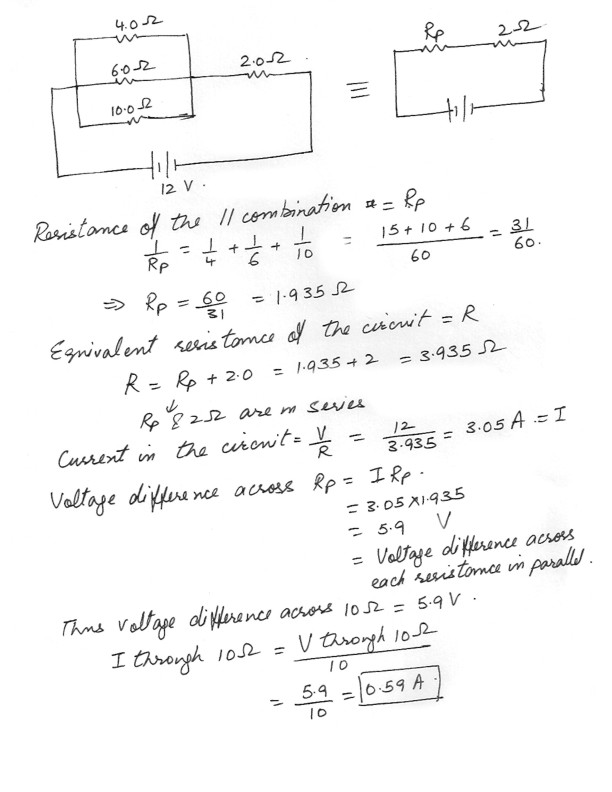 4.0Ω
6.0Ω
10.0Ω
2.0Ω
12 V.
≡
Rp
2Ω
Resistance of the // combination = Rp
1/Rp = 1/4 + 1/6 + 1/10 = 15+10+6/60 = 31/60.
⇒ Rp = 60/31 = 1.935Ω
Equivalent resistance of the circuit = R
R = Rp + 2.0 = 1.935 + 2 = 3.935Ω
↓
Rp & 2Ω are in series
Current in the circuit = V/R = 12/3.935 = 3.05 A = I
Voltage difference across Rp = I Rp.
= 3.05 × 1.935
= 5.9 V
= Voltage difference across
each resistance in parallel.
Thus voltage difference across 10Ω = 5.9 V.
I through 10Ω = V through 10Ω/10
= 5.9/10 = 0.59 A.